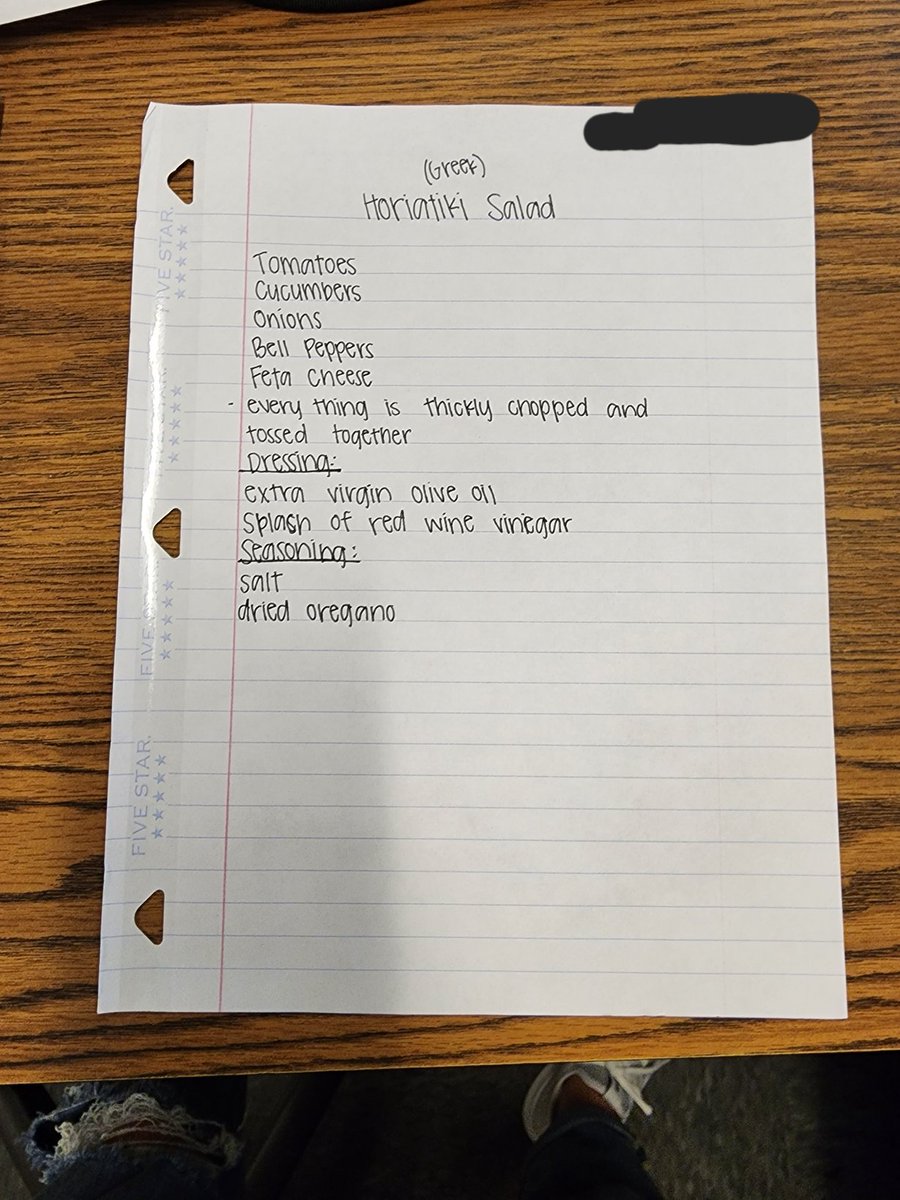 (Greek)
Horiatiki Salad
Tomatoes
Cucumbers
Onions
Bell Peppers
Feta Cheese
- every thing is thickly chopped and
tossed together
Dressing:
extra virgin olive oil
Splash of red wine vinegar
Seasoning:
salt
dried oregano
FIVE STAR.
FIVE
FIVE STAR.